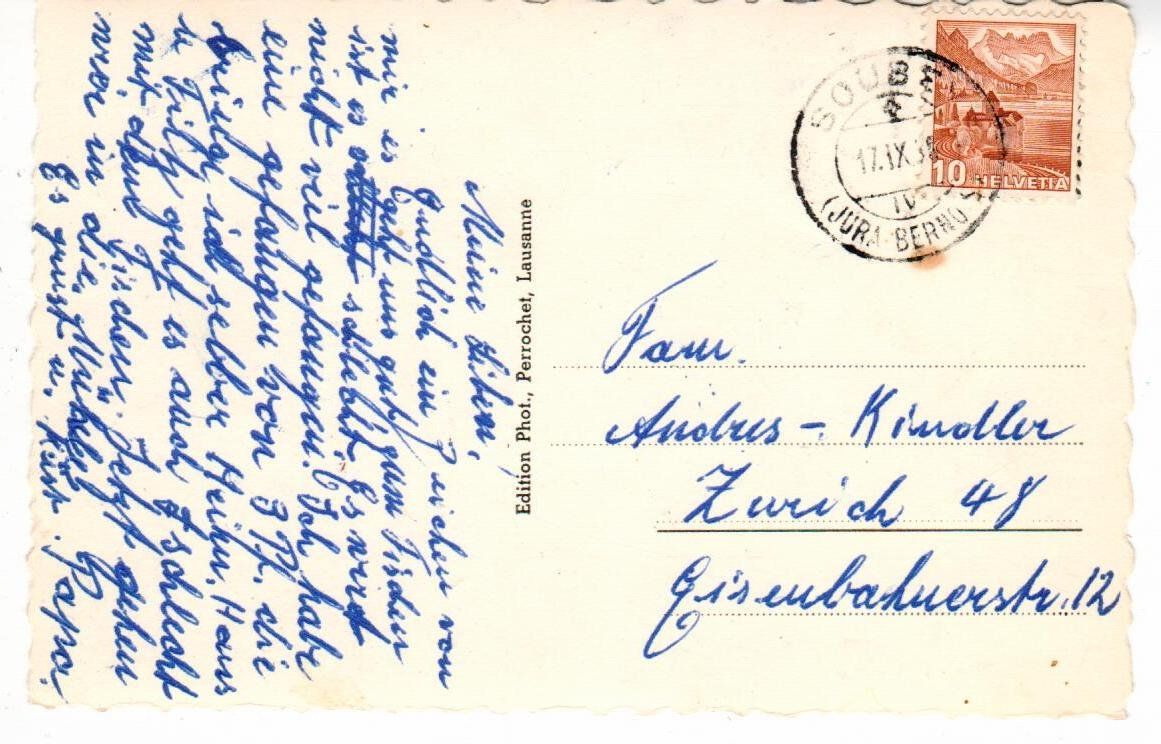 Meine Lieben,
Endlich ein Zeichen von
mir es geht uns gut, zum Fischen
ist es schlecht. Es wird
nicht viel gefangen. Ich habe
eine gefangen von 3 Pf. die
bringe ich selber Heim. Hans
u. Fritz geht es auch schlecht
mit dem Fischen. Jetzt gehen
wir in die
Es grüsst u. Küsst Papa.
Edition Phot., Perrochet, Lausanne
SOUBEY
17.IX.3
(JURA-BERNOIS)
10 HELVETIA
Fam.
Andres - Kindler
Zürich 48
Eisenbahnerstr. 12